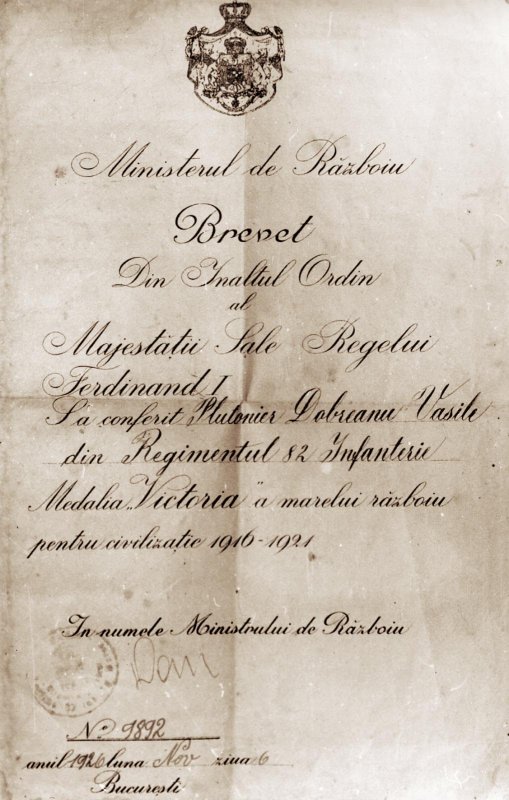 Ministerul de Războiu
Brevet
Din Inaltul Ordin
al
Majestății Sale Regelui
Ferdinand I
S'a conferit Plutonier Dobreanu Vasile
din Regimentul 82 Infanterie
Medalia „Victoria" a marelui războiu
pentru civilizație 1916-1921
In numele Ministrului de Războiu
No 9892
anul 1926 luna Nov ziua 6
București